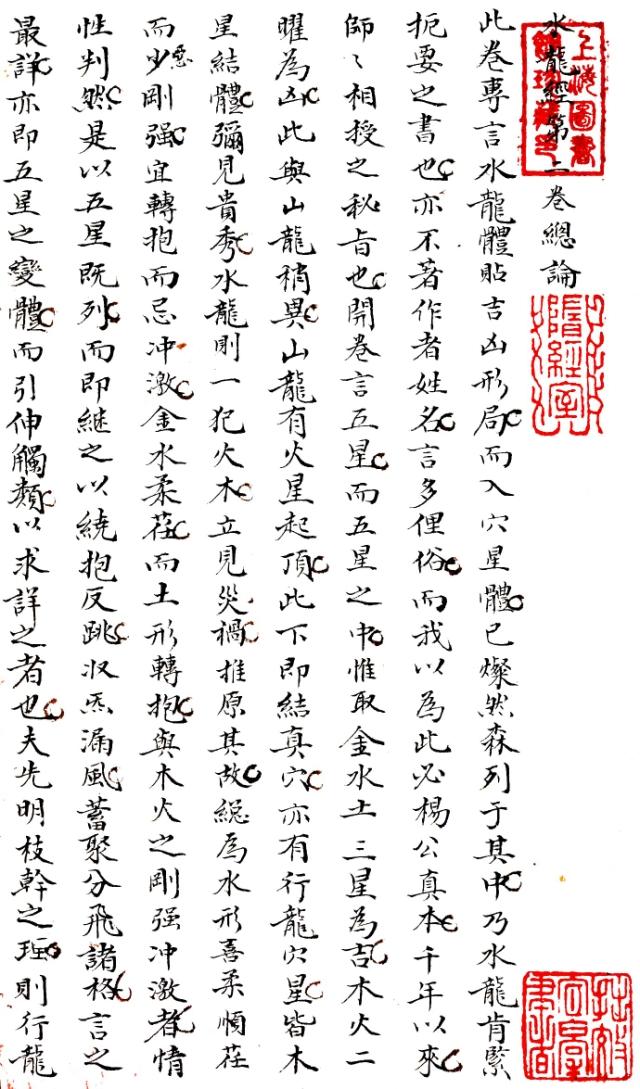 水龍經第二卷總論
此卷專言水龍體貼吉凶形局而入穴星體已燦然森列于其中乃水龍肯綮
扼要之書也亦不著作者姓名言多俚俗而我以為此必楊公真本千年以來
師〻相授之秘旨也開卷言五星而五星之中惟取金水土三星為吉木火二
曜為凶此與山龍稍異山龍有火星起頂此下即結真穴亦有行龍穴星皆木
星結體彌見貴秀水龍則一犯火木立見災禍推原其故緫為水形喜柔順荏
而少惡剛强宜轉抱而忌冲激金水柔荏而土形轉抱與木火之剛强冲激者情
性判然是以五星既列而即継之以繞抱反跳収炁漏風蓄聚分飛諸格言之
最詳亦即五星之變體而引伸觸類以求詳之者也夫先明枝幹之理則行龍
上海圖書館珍藏